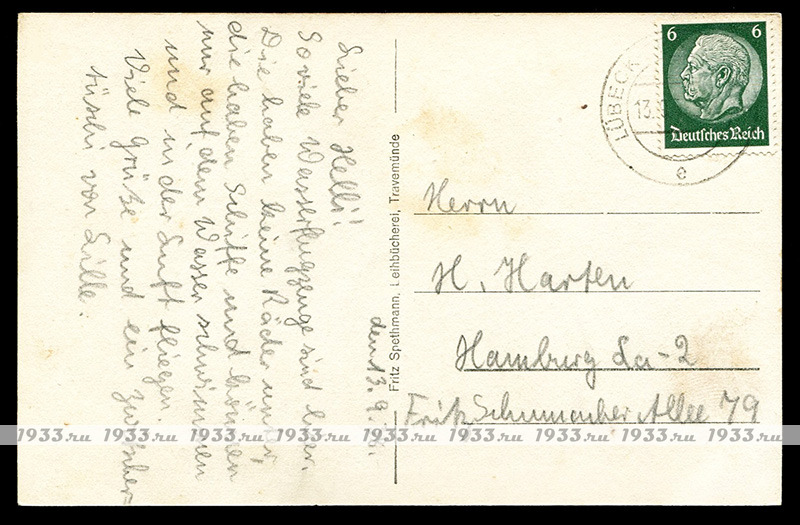 Lieber Helli!
So viele Wasserflugzeuge sind hier.
Die haben keine Räder unter,
die haben Schiffe und können
nur auf dem Wasser schwimmen
und in der Luft fliegen.
Viele Grüße und ein
von Lille.
den 13. 9.
Fritz Spethmann, Leihbücherei, Travemünde
LÜBECK
13.
e
6 6
Deutsches Reich
Herrn
H. Harten
Hamburg La-2
Fritz Schumacher Allee 79
1933.ru 1933.ru 1933.ru 1933.ru 1933.ru 1933.ru 1933.ru 1933.ru 1933.ru